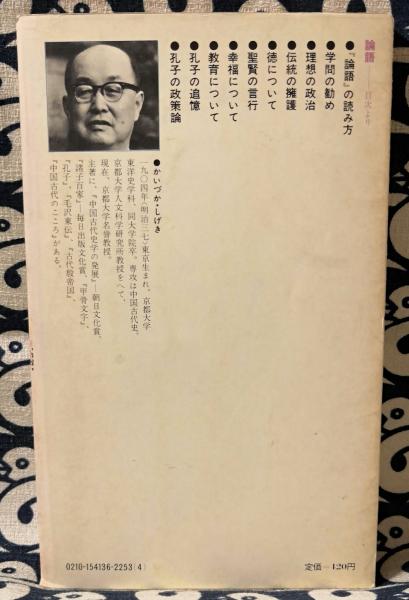 論語――目次より
●『論語』の読み方
●学問の勧め
●理想の政治
●伝統の擁護
●徳について
●聖賢の言行
●幸福について
●教育について
●孔子の追憶
●孔子の政策論
●かいづか・しげき
一九〇四年(明治三七)東京生まれ。京都大学
東洋史学科、同大学院卒。専攻は中国古代史。
京都大学人文科学研究所教授をへて、
現在、京都大学名誉教授。
主著に、『中国古代史学の発展』―朝日文化賞、
『諸子百家』―毎日出版文化賞、『甲骨文字』、
『孔子』、『毛沢東伝』、『古代殷帝国』、
『中国古代のこころ』がある。
0210-154136-2253(4)
定価―420円